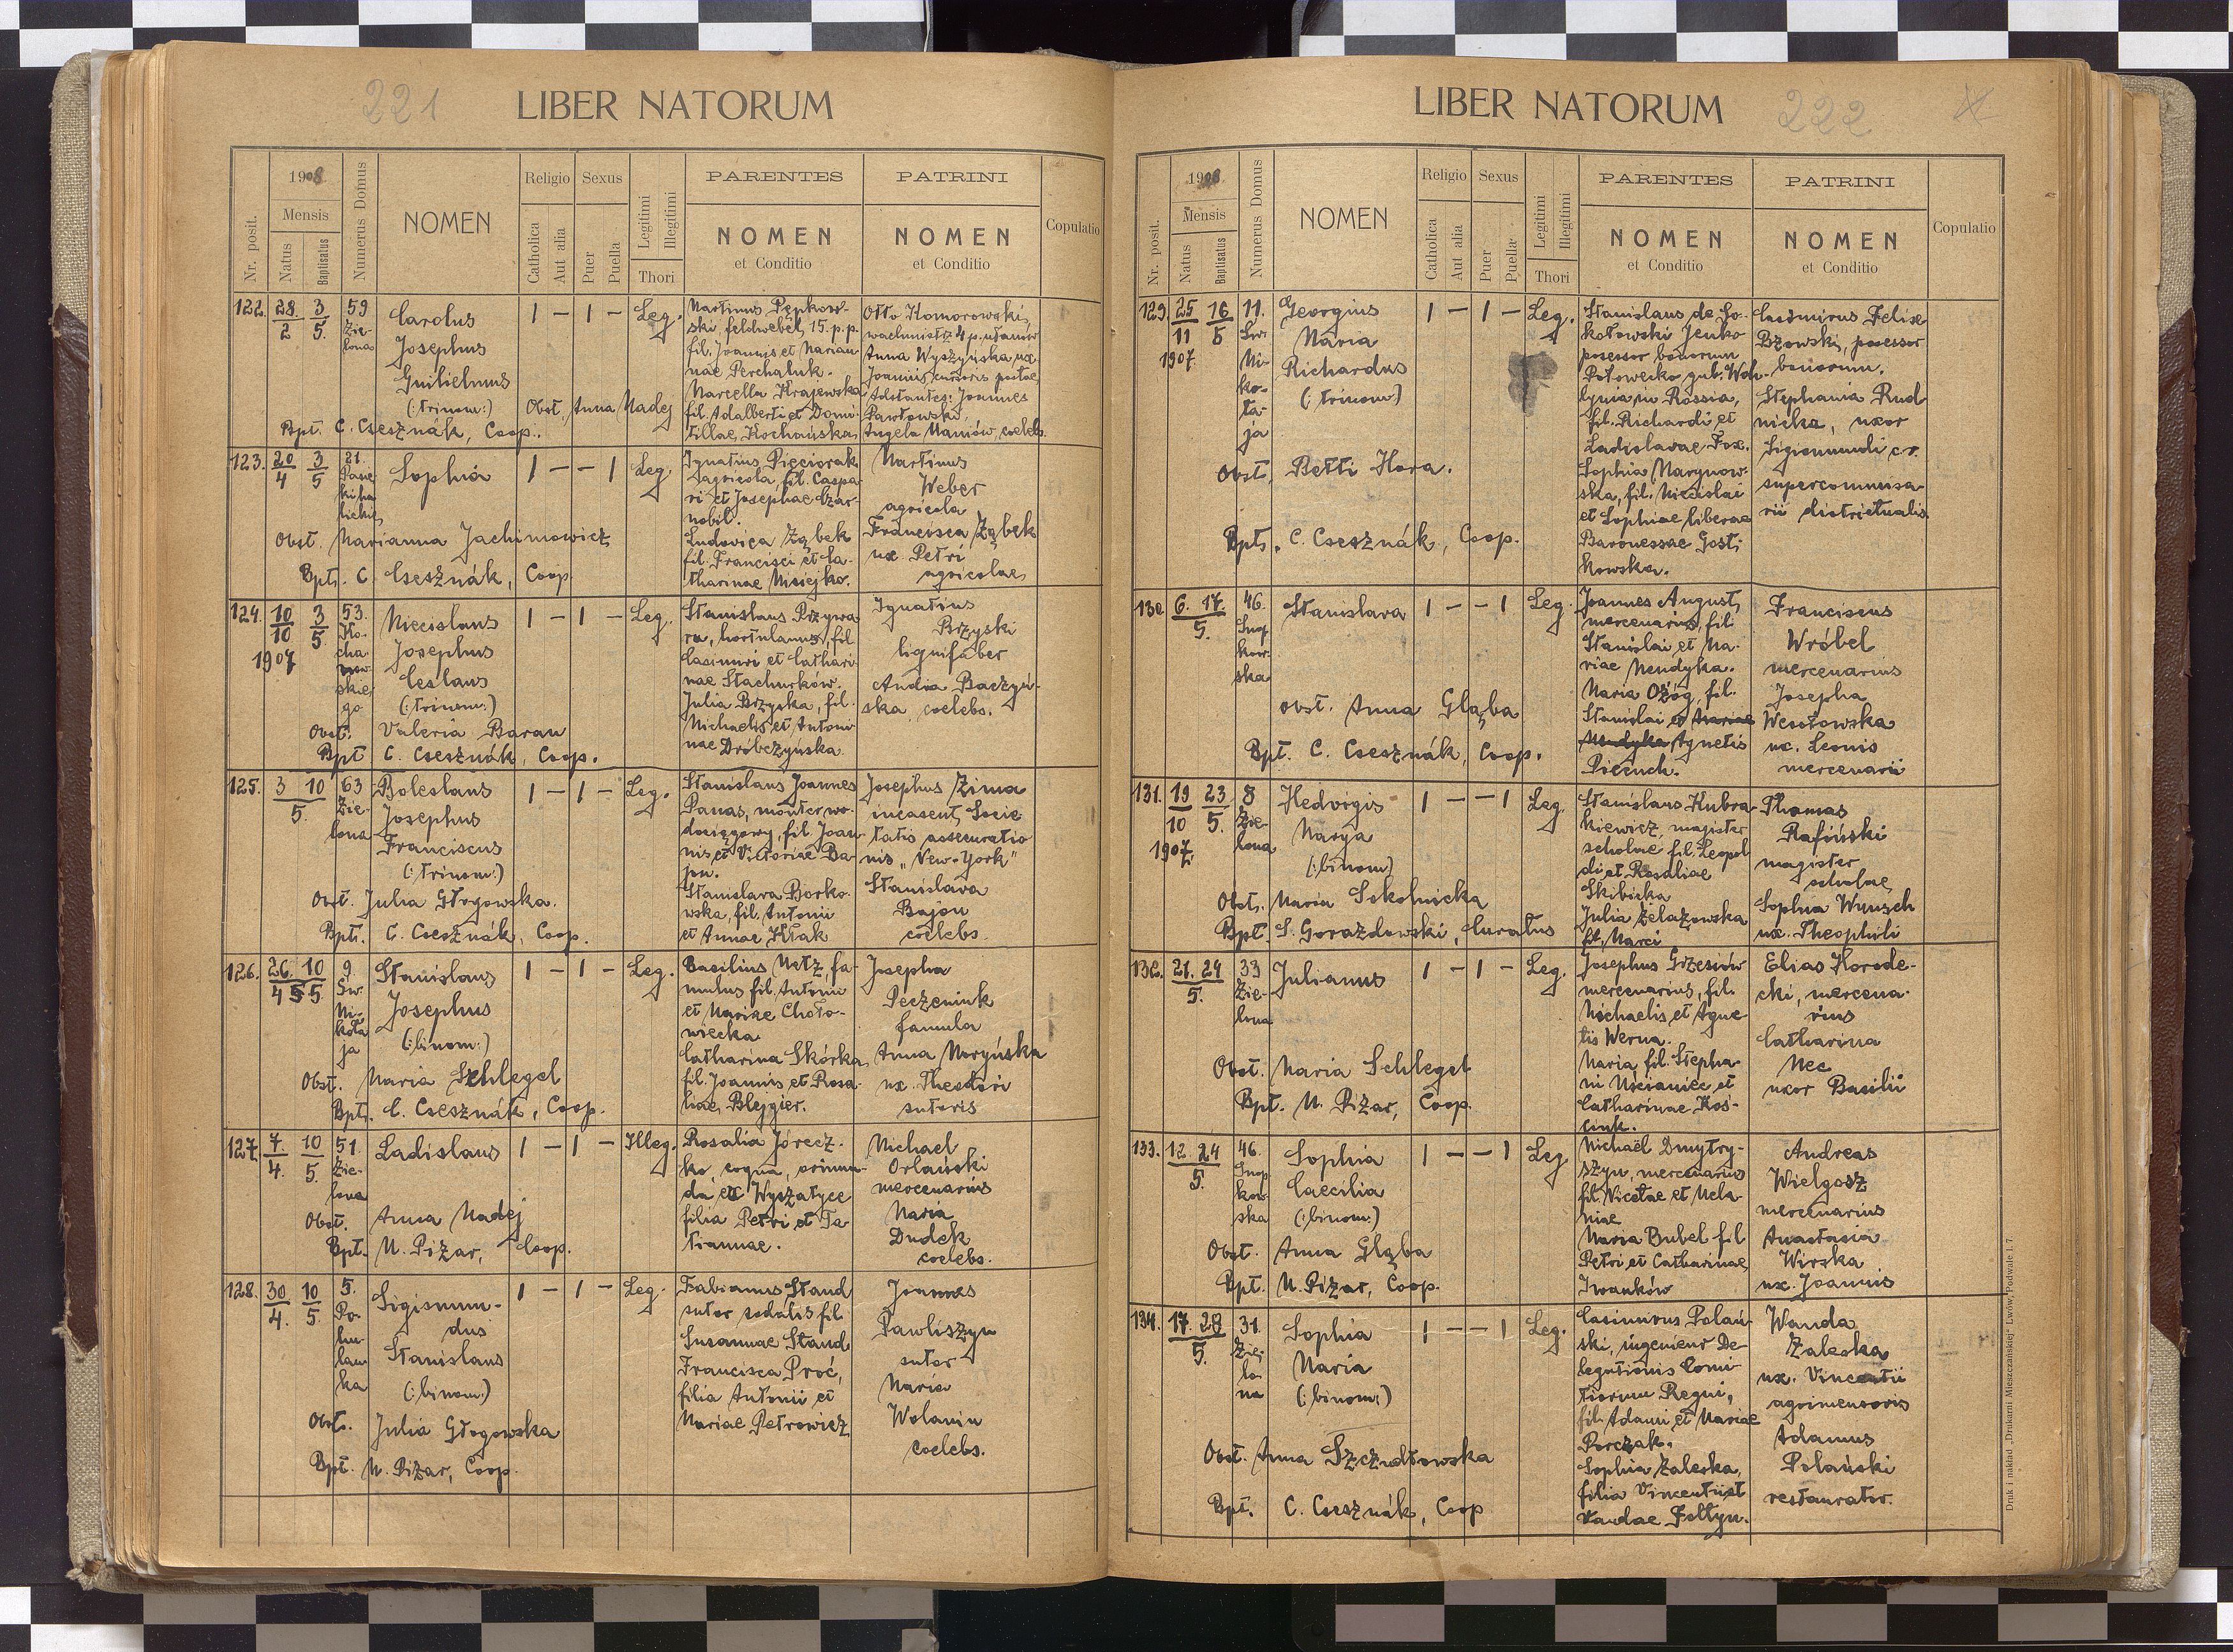 221
LIBER NATORUM
Nr. posit.
1908
Mensis
Natus
Baptisatus
Numerus Domus
NOMEN
Religio
Catholica
Aut alia
Sexus
Puer
Puella
Legitimi
Illegitimi
Thori
PARENTES
NOMEN
et Conditio
PATRINI
NOMEN
et Conditio
Copulatio
122. 28/2 3/5. 59 Zie-lona
Carolus
Josephus
Guilielmus
(:trinom:)
1 — 1 — Leg.
Obst. Anna Nadej
Bpt. C. Csesznák, Coop.
Martinus Pępkow-
ski, feldwebel, 15. p.p.
fil. Joannis et Marian-
nae Perchaluk.
Marcella Krajewska
fil. Adalberti et Domi-
tillae, Kochańska,
Otto Komorowski,
wachmistr. 4 p. ułanów
Anna Wyszyńska ux.
Joannis, cursoris postae,
Adstantes: Joannes
Pawłowski,
Angela Maniów, coelebs.
123. 20/4 3/5 21.
Sophia
1 — — 1 Leg.
Obst. Marianna Jachimowicz
Bpt. C. Csesznák, Coop.
Ignatius Pięciorak
agricola, fil. Caspa-
ri et Josephae Czar-
nobil.
Ludovica Ząbek
fil. Francisci et Ca-
tharinae Misiejko.
Martinus
Weber
agricola
Francisca Ząbek
ux. Petri
agricolae
124. 10/10 1907 3/5 53.
Ko-
cha-
now-
skie
go
Miecislaus
Josephus
Ceslaus
(:trinom:)
1 — 1 — Leg.
Obst. Valeria Baran
Bpt C. Csesznák, Coop.
Stanislaus Przywa-
ra, hortulanus, fil
Casimiri et Cathari-
nae Stachurków.
Julia Bżyska, fil.
Michaelis et Antoni-
nae Dróbczyńska
Ignatius
Brzyski
lignifaber
Audia Baczyń-
ska, coelebs.
125. 3 10/5. 63 Zie-
lona
Boleslaus
Josephus
Franciscus
(:trinom:)
1 — 1 — Leg.
Obst. Julia Głogowska.
Bpt. C. Csesznák, Coop.
Stanislaus Joannes
Panas, monter wo-
dociągowy, fil. Joan-
nis et Victoriae Ba-
jon.
Stanislava Borko-
wska, fil. Antonii
et Annae Kłak
Josephus Zima
incasent, Socie
tatis assecuratio
nis „New-York"
Stanislava
Bajon
coelebs.
126. 26./4 10/5 9.
Św.
Mi-
koła
ja
Stanislaus
Josephus
(:binom:)
1 — 1 — Leg.
Obst. Maria Schlegel
Bpt. C. Csesznák, Coop.
Basilius Metz, fa-
mulus fil. Antonii
et Mariae Choło-
wiecka
Catharina Skórka,
fil. Joannis et Rosa-
liae, Blejgier.
Josepha
Peczeniuk
famula
Anna Moryńska
ux. Theodori
sutoris
127. 7/4. 10/5. 51.
Zie-
lona
Ladislaus
1 — 1 — Illeg.
Obst. Anna Nadej
Bpt. M. Piżar, Coop.
Rosalia Jórecz-
ko, coqua, oriun-
da ex Wyszatyce
filia Petri et Ta-
tiannae.
Michael
Orlanski
mercenarius
Maria
Dudek
coelebs.
128. 30/4. 10/5. 5.
Po-
hu-
lan-
ka
Sigismun-
dus
Stanislaus
(:binom:)
1 — 1 — Leg.
Obst. Julia Głogowska
Bpt. M. Piżar, Coop.
Fabianus Staud
sutor sodalis fil
Susannae Staud
Francisca Proć,
filia Antonii et
Mariae Petrowicz
Joannes
Pawliszyn
sutor
Maria
Wolanin
coelebs.
LIBER NATORUM
222
Nr. posit.
1908
Mensis
Natus
Baptisatus
Numerus Domus
NOMEN
Religio
Catholica
Aut alia
Sexus
Puer
Puellæ
Legitimi
Illegitimi
Thori
PARENTES
NOMEN
et Conditio
PATRINI
NOMEN
et Conditio
Copulatio
129. 25/11 1907. 16/5 11.
Św.
Mi-
ko-
ła-
ja
Georgius
Maria
Richardus
(:trinom:)
1 — 1 — Leg.
Obst. Betti Hora.
Bpt. C. Csesznák, Coop.
Stanislaus de So-
kołowski Jenko
posessor bonorum
Potowecko gub. Woh-
lynia in Rossia,
fil. Richardi et
Ladislavae Fox.
Sophia Marynow-
ska, fil. Miecislai
et Sophiae liberae
Baronessae Gost-
kowska.
Casimirus Felix
Bzowski, posessor
bonorum.
Stephania Rud
nicka, uxor
Sigismundi c.r.
supercommissa-
rii districtualis
130 6. 17./5. 46.
Snop
kow-
ska
Stanislava
1 — — 1 Leg.
obst. Anna Głąba
Bpt. C. Csesznák, Coop.
Joannes August,
mercenarius, fil.
Stanislai et Ma-
riae Mendyka.
Maria Ożóg, fil.
Stanislai et Mariae
Mendyka Agnetis
Pieczuch.
Franciscus
Wróbel
mercenarius
Josepha
Wesołowska
ux. Leonis
mercenarii
131. 19/10 1907. 23/5. 8
Zie-
lona
Hedvigis
Marya
(:binom)
1 — — 1 Leg.
Obst. Maria Sokolnicka
Bpt. S. Gorazdowski, Curatus
Stanislaus Kubra
kiewicz, magister
scholae fil. Leopol
di et Rosaliae
Skibicka
Julia Żelazowska
fil. Marci
Thomas
Rafiński
magister
scholae,
Sophia Wunsch
ux. Theophili
132. 21. 24/5. 33
Zie-
lona
Julianus
1 — 1 — Leg.
Obst. Maria Schlegel
Bpt. M. Piżar, Coop.
Josephus Grzesiów
mercenarius, fil.
Michaelis et Agne-
tis Werna.
Maria fil. Stepha-
ni Uścianiec et
Catharinae Koś-
cink.
Elias Horode-
cki, mercena-
rius
Catharina
Mec
uxor Basilii
133. 12. 24/5. 46.
Snop
kow-
ska
Sophia
Caecilia
(:binom:)
1 — — 1 Leg
Obst. Anna Głąba
Bpt. M. Piżar, Coop.
Michaël Dmytry-
szyn, mercenarius
fil. Nicetae et Mela-
niae
Maria Bubel fil
Petri et Catharinae
Iwanków
Andreas
Wielgosz
mercenarius
Anastasia
Wirska
ux. Joannis
134. 17. 28/5. 31.
Zie-
lo-
na
Sophia
Maria
(:binom:)
1 — — 1 Leg.
Obst. Anna Szczudłowska
Bpt. C. Csesznák, Coop
Casimirus Polań-
ski, ingenieur De-
legationis Comi-
tiorum Regni,
fil. Adami et Mariae
Porczak.
Sophia Zaleska,
filia Vincentii et
Vandae Foltyn.
Wanda
Zaleska
ux. Vincentii
agrimensoris
Adamus
Polański
restaurator.
Druk i nakład „Drukarni Mieszczańskiej" Lwów, Podwale l. 7.